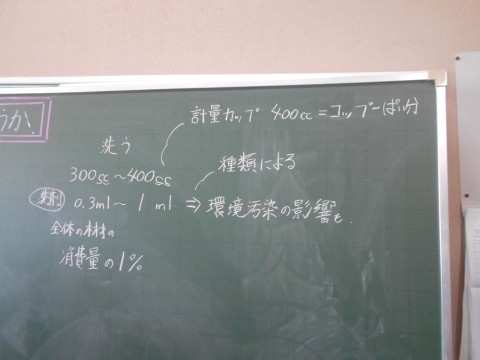 うか。
計量カップ 400cc=コップ一ぱい分
洗う
300cc~400cc
種類による
洗剤 0.3ml~1ml ⇒ 環境汚染の影響も.
全体の材料の
消費量の1%